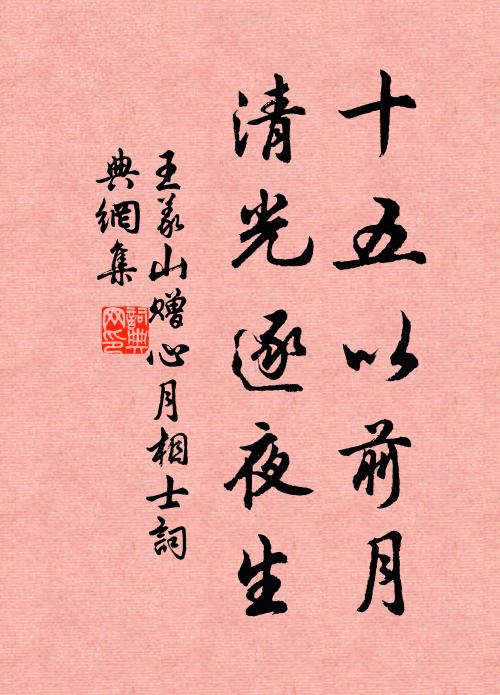 十五以前月
清光逐夜生
王義山贈心月相士詞
典網集
詞典
网印